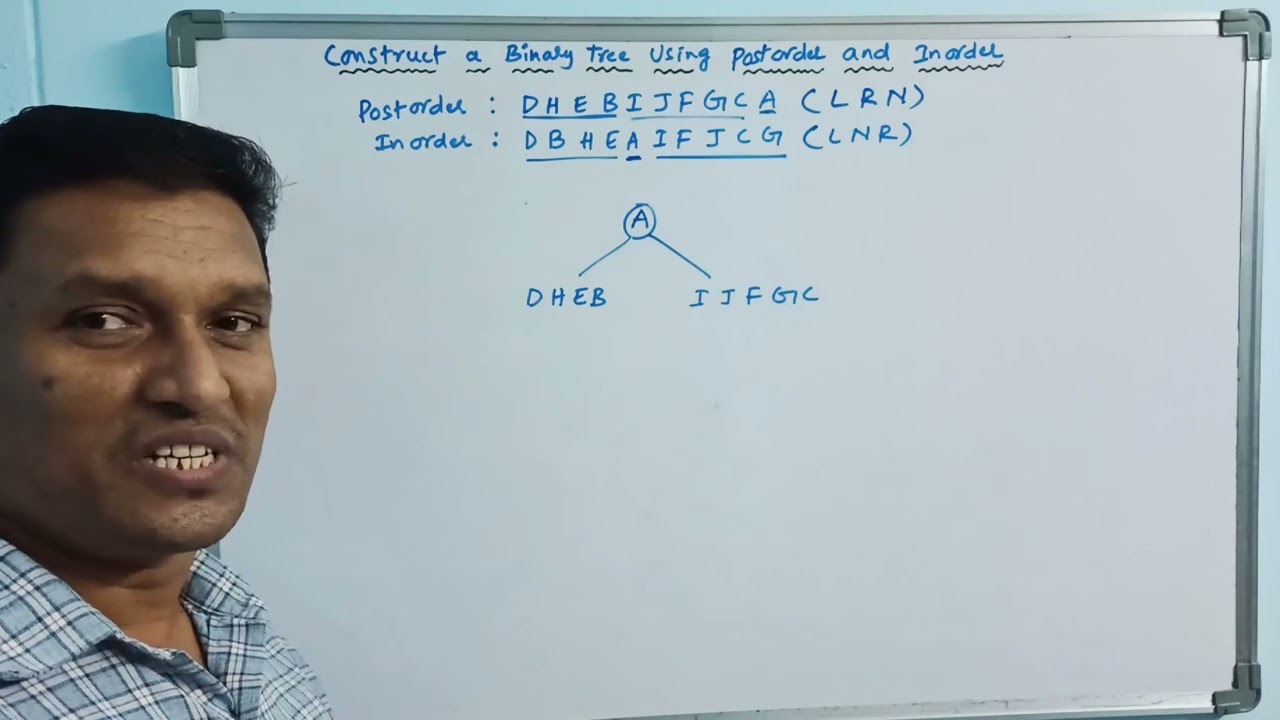 Construct a Binary Tree Using Postorder and Inorder
Postorder : D H E B I J F G C A (L R N)
Inorder : D B H E A I F J C G (L N R)
A
D H E B I J F G C